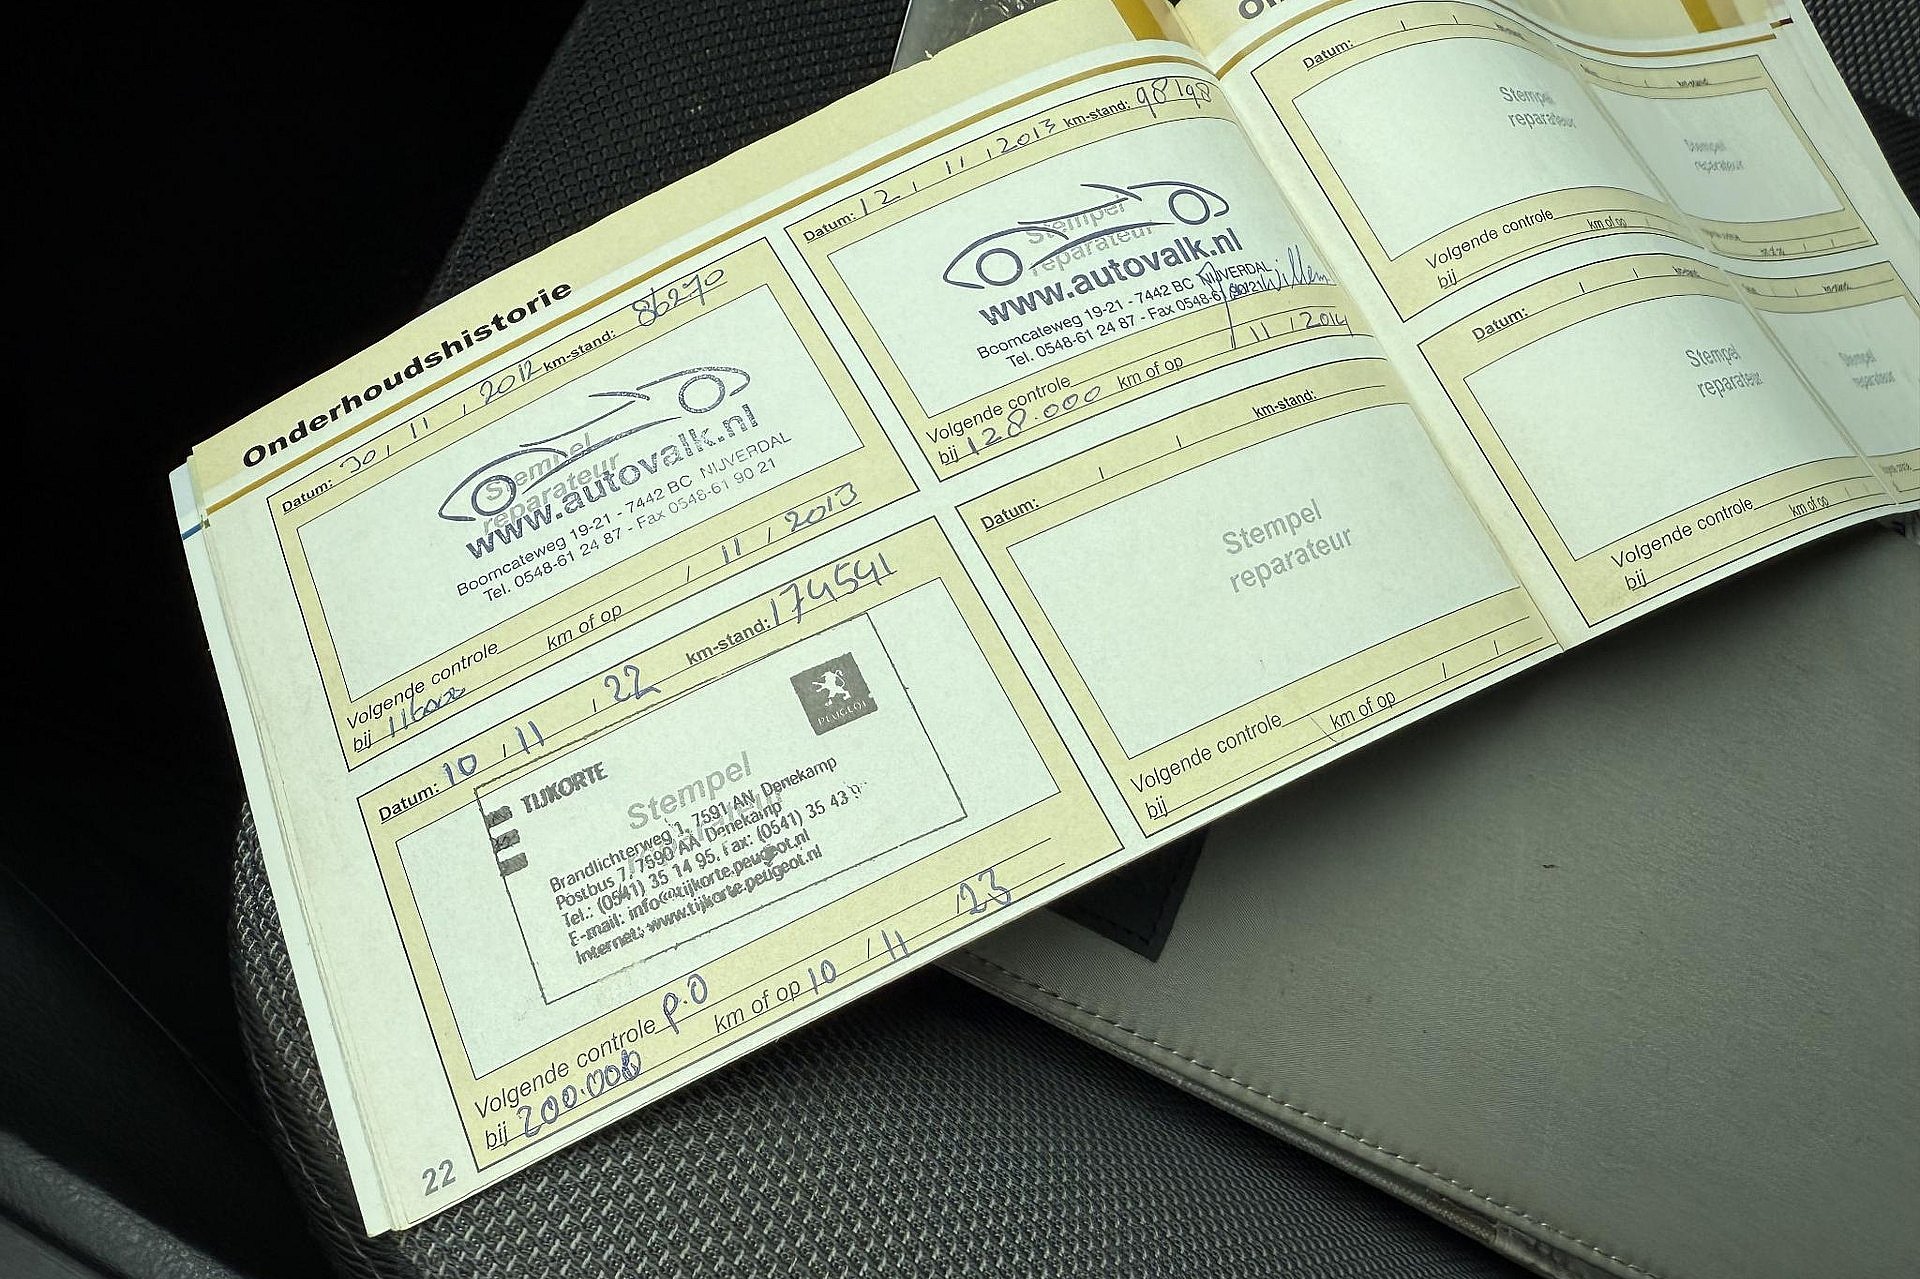 Onderhoudshistorie
Datum: 30 / 11 / 2012 km-stand: 86270
Stempel
reparateur
www.autovalk.nl
Boomcateweg 19-21 - 7442 BC NIJVERDAL
Tel. 0548-61 24 87 - Fax 0548-61 90 21
Volgende controle
bij 116000 km of op / 11 / 2013
Datum: 12 / 11 / 2013 km-stand: 98198
Stempel
reparateur
www.autovalk.nl
Boomcateweg 19-21 - 7442 BC NIJVERDAL
Tel. 0548-61 24 87 - Fax 0548-61 90 21
Willem
Volgende controle
bij 128.000 km of op / 11 / 2014
Datum: 10 / 11 / 22 km-stand: 174541
PEUGEOT
TIJKORTE
Stempel
Brandlichterweg 1, 7591 AN Denekamp
Postbus 7, 7590 AA Denekamp
Tel.: (0541) 35 14 95, Fax: (0541) 35 43
E-mail: info@tijkorte.peugeot.nl
Internet: www.tijkorte.peugeot.nl
Volgende controle P.O
bij 200.000 km of op 10 / 11 / 23
Datum: / / km-stand:
Stempel
reparateur
Volgende controle
bij km of op / /
22
Datum: / /
Stempel
reparateur
Volgende controle
bij km of op
Datum: / /
Stempel
reparateur
Volgende controle
bij km of op
Stempel
reparateur
Stempel
reparateur